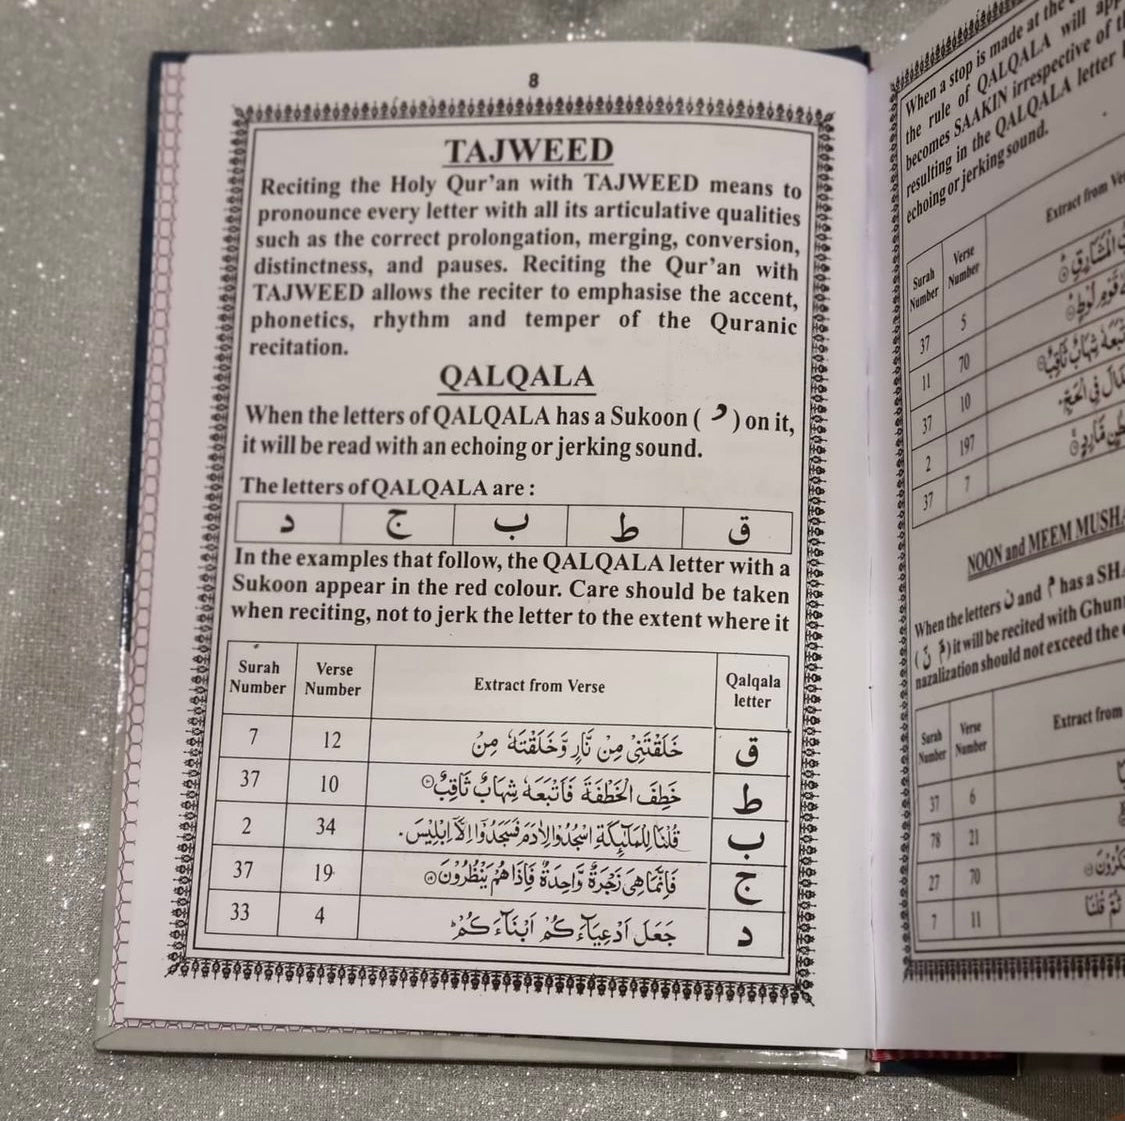 8
TAJWEED
Reciting the Holy Qur’an with TAJWEED means to
pronounce every letter with all its articulative qualities
such as the correct prolongation, merging, conversion,
distinctness, and pauses. Reciting the Qur’an with
TAJWEED allows the reciter to emphasise the accent,
phonetics, rhythm and temper of the Quranic
recitation.
QALQALA
When the letters of QALQALA has a Sukoon ( ) on it,
it will be read with an echoing or jerking sound.
The letters of QALQALA are :
د ج ب ط ق
In the examples that follow, the QALQALA letter with a
Sukoon appear in the red colour. Care should be taken
when reciting, not to jerk the letter to the extent where it
Surah Number Verse Number Extract from Verse Qalqala letter
7 12 خَلَقْتَنِىْ مِنْ نَّارٍ وَّخَلَقْتَهٗ مِنْ ق
37 10 خَطِفَ الْخَطْفَةَ فَاَتْبَعَهٗ شِهَابٌ ثَاقِبٌ ط
2 34 قُلْنَا لِلْمَلٰٓئِكَةِ اسْجُدُوْا لِاٰدَمَ فَسَجَدُوْٓا اِلَّاۤ اِبْلِيْسَ ب
37 19 فَاِنَّمَا هِىَ زَجْرَةٌ وَّاحِدَةٌ فَاِذَا هُمْ يَنْظُرُوْنَ ج
33 4 جَعَلَ اَدْعِيَآءَكُمْ اَبْنَآءَكُمْ د
When a stop is made at the
the rule of QALQALA will
becomes SAAKIN irrespective of
resulting in the QALQALA letter
echoing or jerking sound.
Surah Number Verse Number Extract from
37 5 الْمَشَارِقِ
11 70 قَوْمِ لُوْطٍ
37 10 شِهَابٌ ثَاقِبٌ
2 197 فِى الْحَجِّ
37 7 مَّارِدٍ
NOON and MEEM
When the letters ن and م has a
it will be recited with
nazalization should not exceed the
Surah Number Verse Number Extract from
37 6
78 21
27 70
7 11 ثُمَّ قُلْنَا